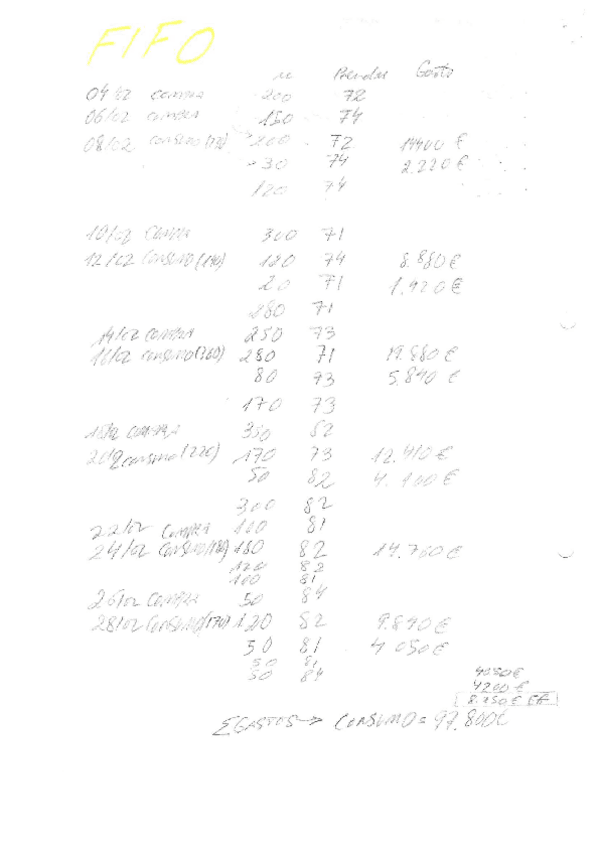 FIFO
u Precio Gasto
04/02 compra 200 72
06/02 compra 150 74
08/02 consumo 200 72 14400 €
30 74 2.220 €
120 74
10/02 compra 300 71
12/02 consumo (140) 120 74 8.880 €
20 71 1.420 €
280 71
14/02 compra 250 73
16/02 consumo (360) 280 71 19.880 €
80 73 5.840 €
170 73
18/02 compra 350 82
consumo (220) 170 73 12.410 €
50 82 4.100 €
300 82
22/02 compra 100 81
24/02 consumo (180) 180 82 14.760 €
120 82
100 81
26/02 compra 50 84
28/02 consumo (170) 120 82 9.840 €
50 81 4 050 €
50 81
50 84
4050 €
4200 €
8.250 € EF
ΣGASTOS → CONSUMO = 97.800€